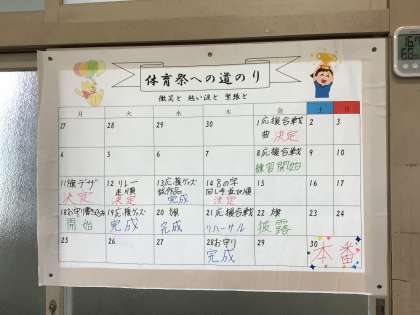 体育祭への道のり
微笑と 熱い涙と 緊張と
月 火 水 木 金 土 日
27 28 29 30 1 応援合戦 2 3
曲 決定
4 5 6 7 8 応援合戦 9 10
練習開始
11 旗デザ 12 リレー 13 応援グッズ 14 8の字 15 16 17
走順 試作品 回し手並び順
決定 決定 完成 決定
18 お守り書き込み 19 応援グッズ 20 旗 21 応援合戦 22 旗 23 24
開始 完成 完成 リハーサル 披露
25 26 27 28 お守り 29 30
完成 本番